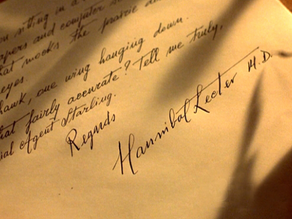 sitting in a
and computer
that mocks the
eyes
hawk, one wing hanging down.
that fairly accurate? Tell me truly,
ial Agent Starling.
Regards
Hannibal Lecter M.D.